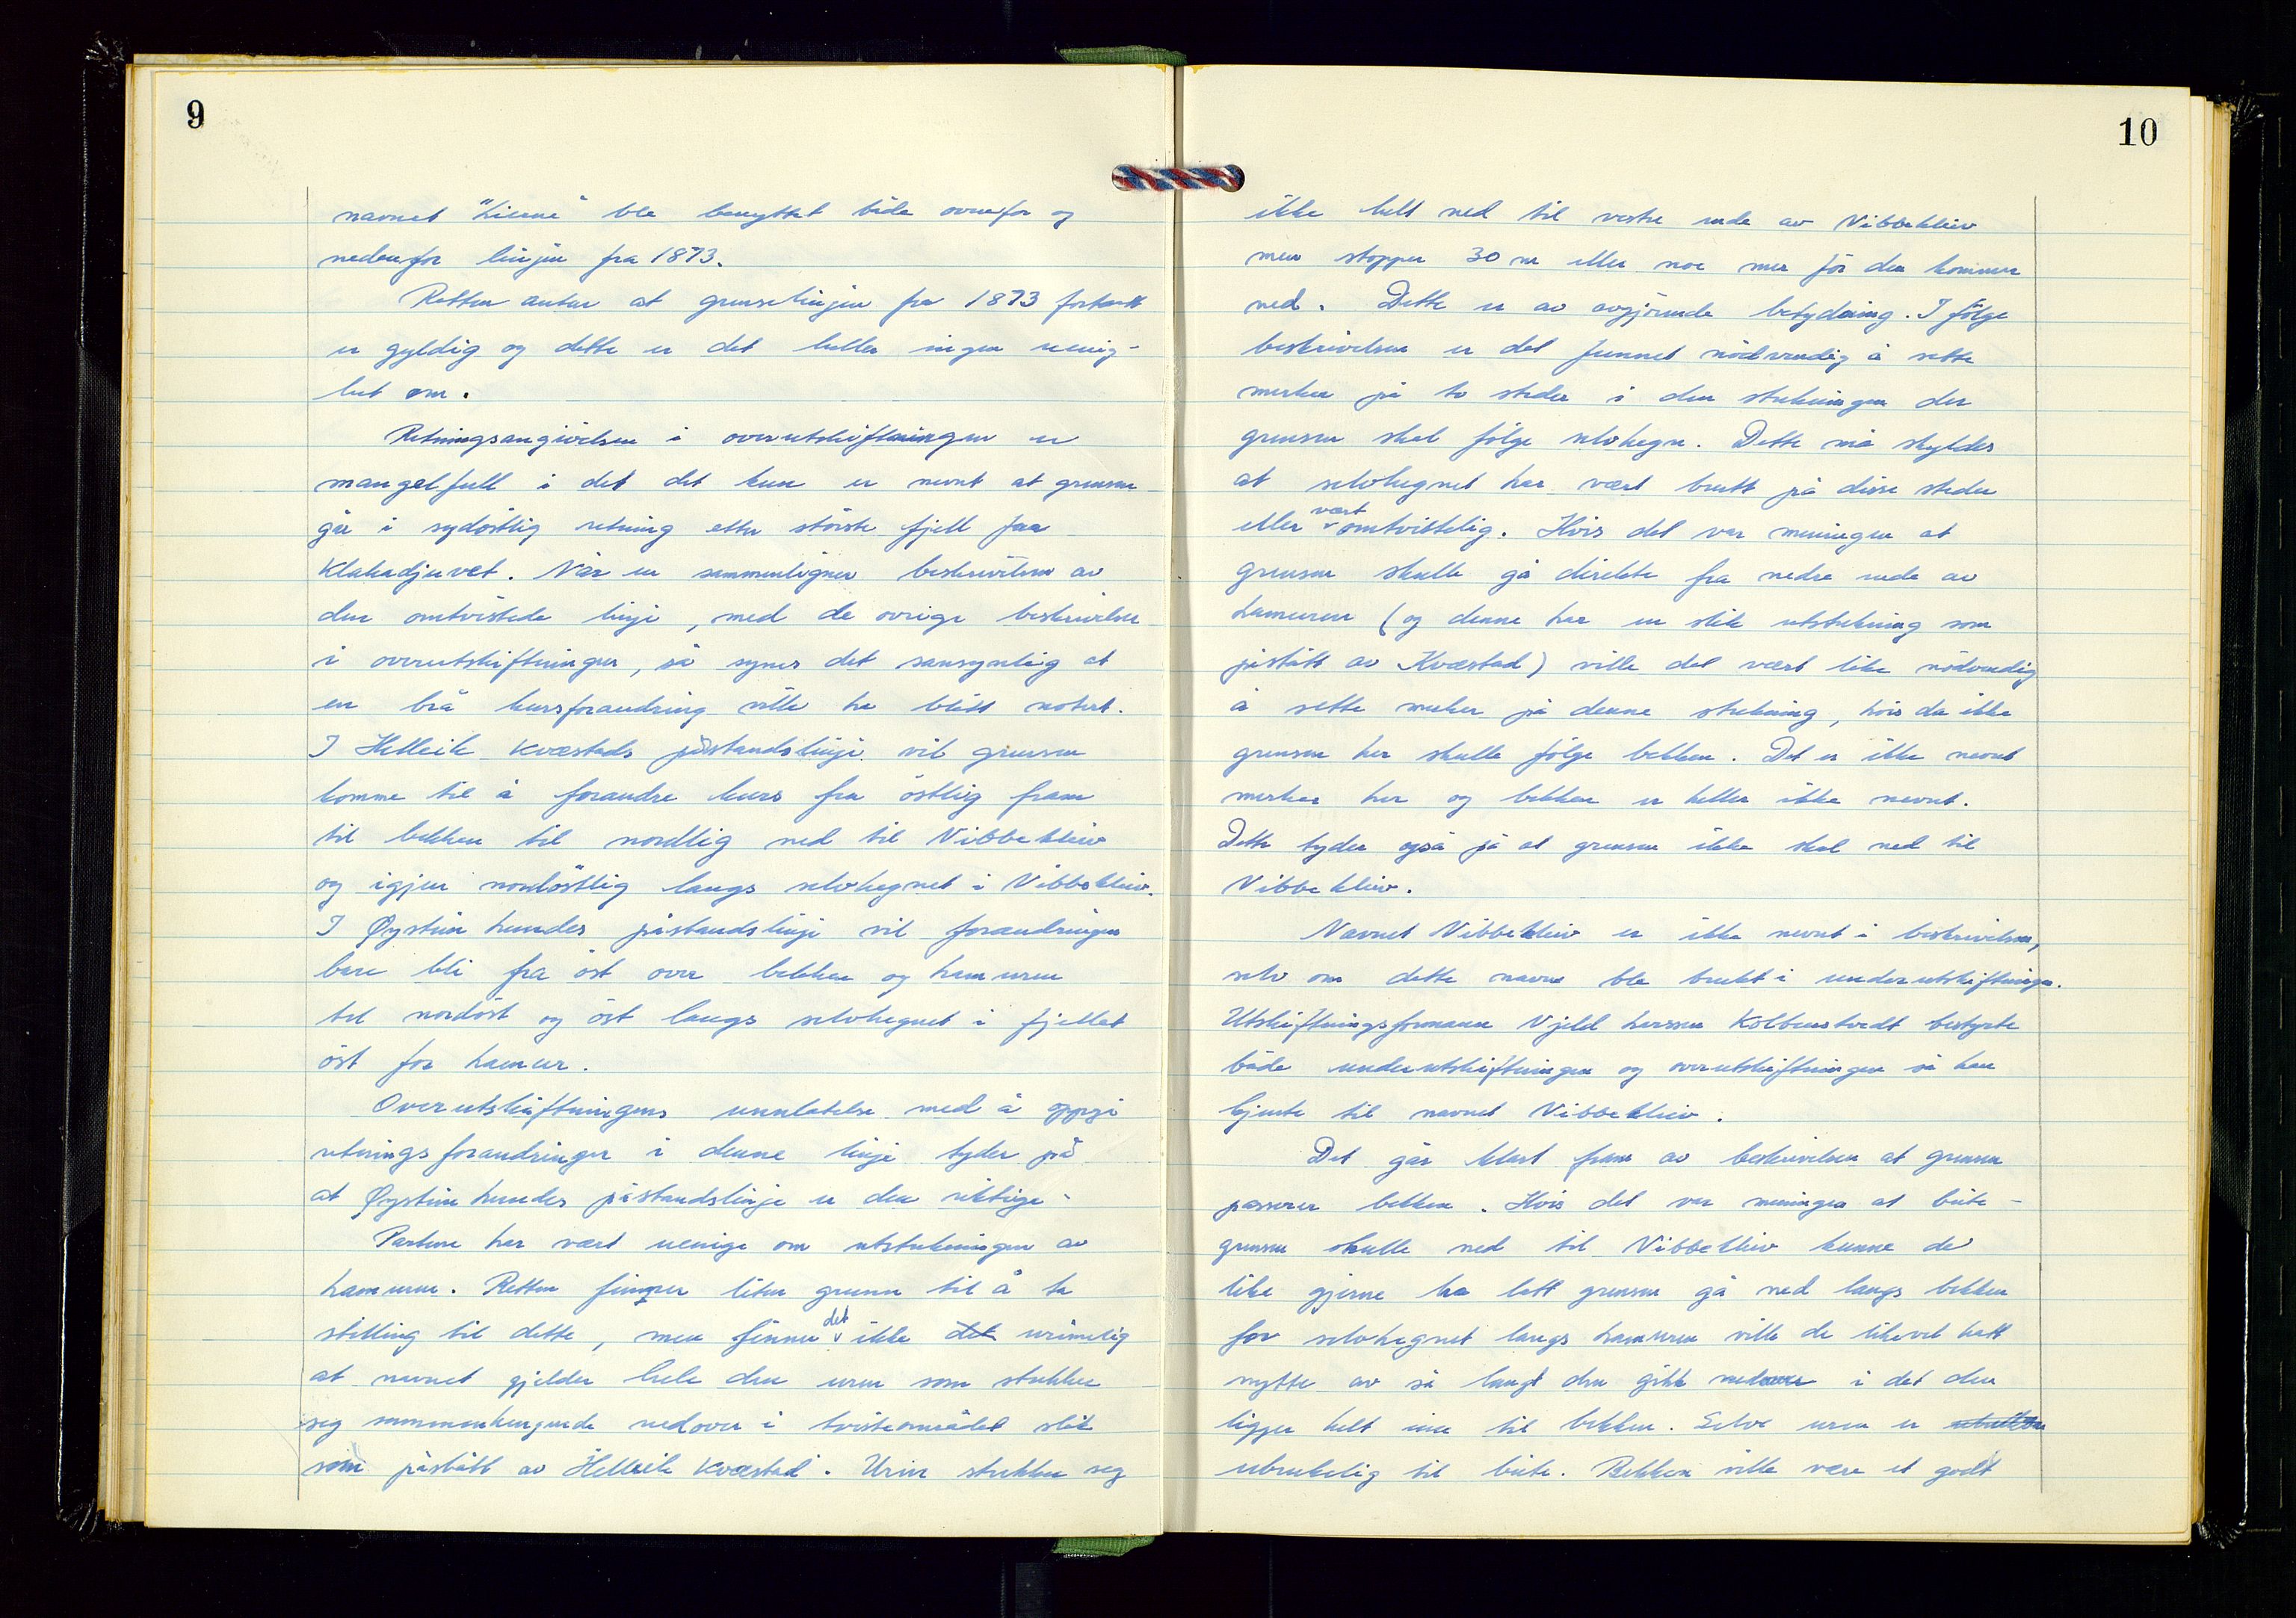 9
navnet "Lierne" ble benyttet både ovenfor og
nedenfor linjen fra 1873.
Retten antar at grenselinjen fra 1873 fortsatt
er gyldig og dette er det heller ingen uenig-
het om.
Retningsangivelsen i overutskiftningen er
mangelfull i det det kun er nevnt at grensen
går i sydöstlig retning etter störste fjell fra
Klakadjuvet. Når en sammenligner beskrivelsen av
den omtvistede linje, med de övrige beskrivelser
i overutskiftningen, så synes det sansynlig at
en brå kursforandring ville ha blitt notert.
I Helleik Kvæstads påstandslinje vil grensen
komme til å forandre kurs fra östlig fram
til bekken til nordlig ned til Vibbekleiv
og igjen nordöstlig langs selvhegnet i Vibbekleiv.
I Øystein Lundes påstandslinje vil forandringen
bare bli fra öst over bekken og hamuren
til nordöst og öst langs selvhegnet i fjellet
öst for hamur.
Overutskiftningens unnlatelse med å oppgi
retningsforandringer i denne linje tyder på
at Øystein Lundes påstandslinje er den riktige.
Partene har vært uenige om utstrekningen av
hamuren. Retten finner liten grunn til å ta
stilling til dette, men finner det ikke det urimelig
at navnet gjelder hele den uren som strekker
seg sammenhengende nedover i tvisteområdet slik
som påstått av Helleik Kvæstad. Uren strekker seg
10
ikke helt ned til vestre ende av Vibbekleiv
men stopper 30 m eller noe mer för den kommer
ned. Dette er av avgjörende betydning. I fölge
beskrivelsen er det funnet nödvendig å sette
merker på to steder i den strekningen der
grensen skal fölge selvhegn. Dette må skyldes
at selvhegnet har vært brutt på disse steder
eller vært omtvistelig. Hvis det var meningen at
grensen skulle gå direkte fra nedre ende av
hamuren (og denne har en slik utstrekning som
påstått av Kvæstad) ville det vært like nödvendig
å sette merker på denne strekning, hvis da ikke
grensen her skulle fölge bekken. Det er ikke nevnt
merker her og bekken er heller ikke nevnt.
Dette tyder også på at grensen ikke skal ned til
Vibbekleiv.
Navnet Vibbekleiv er ikke nevnt i beskrivelsen,
selv om dette navn ble brukt i underutskiftningen.
Utskiftningsformann Kjeld Kolbenstvedt bestyrte
både underutskiftningen og overutskiftningen så han
kjente til navnet Vibbekleiv.
Det går klart fram av beskrivelsen at grensen
passerer bekken. Hvis det var meningen at beite-
grensen skulle ned til Vibbekleiv kunne de
like gjerne ha latt grensen gå ned langs bekken
for selvhegnet langs hamuren ville de likevel hatt
nytte av så langt den gikk nedover i det den
ligger helt inn til bekken. Selve uren er
ubrukelig til beite. Bekken ville være et godt